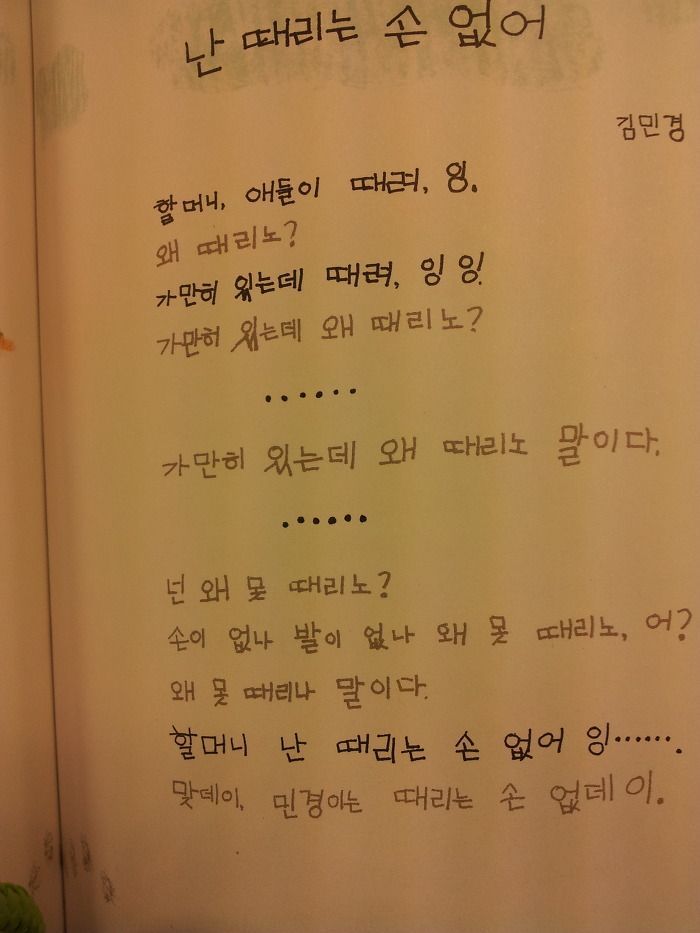 난 때리는 손 없어
김민경
할머니, 애들이 때려, 잉.
왜 때리노?
가만히 있는데 때려, 잉 잉.
가만히 있는데 왜 때리노?
......
가만히 있는데 왜 때리노 말이다.
......
넌 왜 못 때리노?
손이 없나 발이 없나 왜 못 때리노, 어?
왜 못 때리나 말이다.
할머니 난 때리는 손 없어 잉.......
맞데이, 민경이는 때리는 손 없데이.